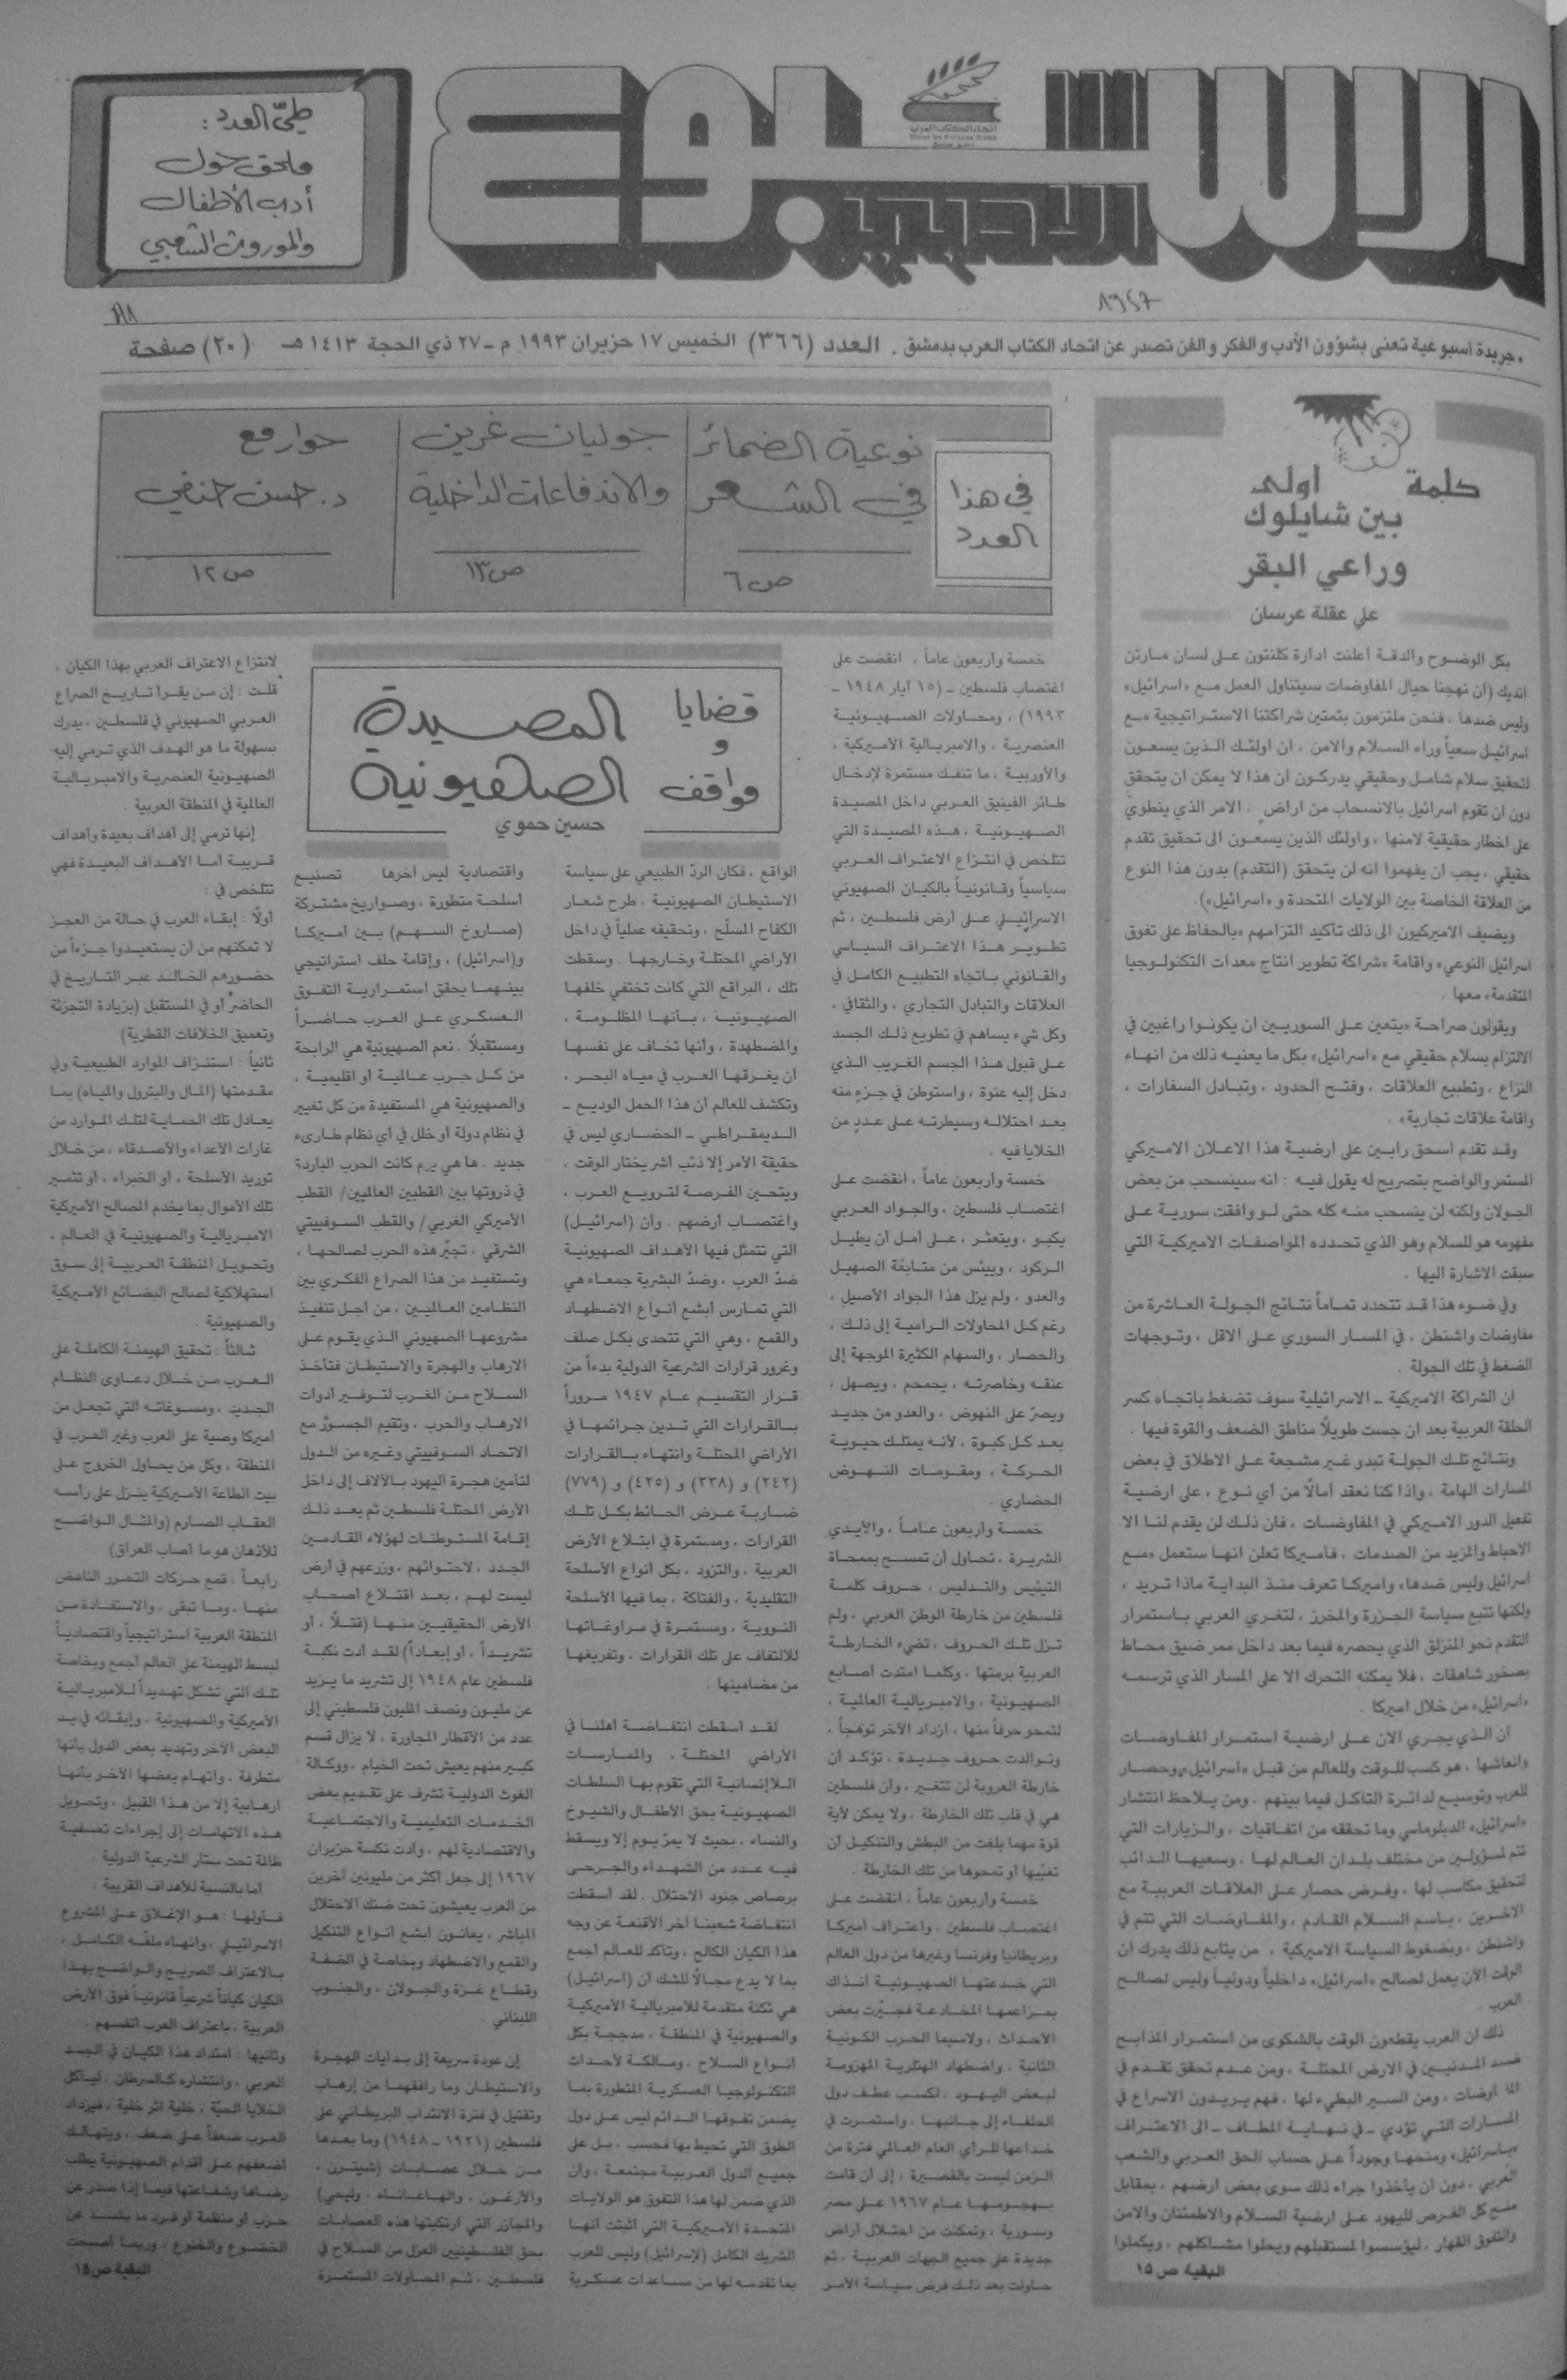 الاسبوع
الأدبي
اتحاد الكتاب العرب
طيّ العدد :
ملحق حول
أدب الأطفال
والموروث الشعبي
جريدة أسبوعية تعنى بشؤون الأدب والفكر والفن تصدر عن اتحاد الكتاب العرب بدمشق . العدد (٣٦٦) الخميس ١٧ حزيران ١٩٩٣ م ـ ٢٧ ذي الحجة ١٤١٣ هـ (٢٠) صفحة
في هذا
العدد
نوعية الضمائر
في الشعر
ص ٦
جوليان غرين
والاندفاعات الداخلية
ص ١٣
حوار مع
د. حسن حنفي
ص ١٢
كلمة اولى
بين شايلوك
وراعي البقر
علي عقلة عرسان
بكل الوضوح والدقة أعلنت ادارة كلنتون على لسان مارتن
انديك (ان نهجنا حيال المفاوضات سيتناول العمل مع «اسرائيل»
وليس ضدها ، فنحن ملتزمون بتمتين شراكتنا الاستراتيجية مع
اسرائيل سعياً وراء السلام والامن ، ان اولئك الذين يسعون
لتحقيق سلام شامل وحقيقي يدركون ان هذا لا يمكن ان يتحقق
دون ان تقوم اسرائيل بالانسحاب من اراض ، الامر الذي ينطوي
على اخطار حقيقية لامنها ، واولئك الذين يسعون الى تحقيق تقدم
حقيقي ، يجب ان يفهموا انه لن يتحقق (التقدم) بدون هذا النوع
من العلاقة الخاصة بين الولايات المتحدة و «اسرائيل») .
ويضيف الاميركيون الى ذلك تأكيد التزامهم «بالحفاظ على تفوق
اسرائيل النوعي» واقامة «شراكة تطوير انتاج معدات التكنولوجيا
المتقدمة» معها .
ويقولون صراحة «يتعين على السوريين ان يكونوا راغبين في
الالتزام بسلام حقيقي مع «اسرائيل» بكل ما يعنيه ذلك من انهاء
النزاع ، وتطبيع العلاقات ، وفتح الحدود ، وتبادل السفارات ،
واقامة علاقات تجارية» .
وقد تقدم اسحق رابين على ارضية هذا الاعلان الاميركي
المستمر والواضح بتصريح له يقول فيه : انه سينسحب من بعض
الجولان ولكنه لن ينسحب منه كله حتى لو وافقت سورية على
مفهومه هو للسلام وهو الذي تحدده المواصفات الاميركية التي
سبقت الاشارة اليها .
وفي ضوء هذا قد تتحدد تماماً نتائج الجولة العاشرة من
مفاوضات واشنطن ، في المسار السوري على الاقل ، وتوجهات
الضغط في تلك الجولة .
ان الشراكة الاميركية ـ الاسرائيلية سوف تضغط باتجاه كسر
الحلقة العربية بعد ان جست طويلاً مناطق الضعف والقوة فيها .
ونتائج تلك الجولة تبدو غير مشجعة على الاطلاق في بعض
المسارات الهامة ، واذا كنا نعقد آمالاً من أي نوع ، على ارضية
تفعيل الدور الاميركي في المفاوضات ، فان ذلك لن يقدم لنا الا
الاحباط والمزيد من الصدمات ، فأميركا تعلن انها ستعمل «مع
اسرائيل وليس ضدها» واميركا تعرف منذ البداية ماذا تريد ،
ولكنها تتبع سياسة الجزرة والمخرز ، لتغري العربي باستمرار
التقدم نحو المنزلق الذي يحصره فيما بعد داخل ممر ضيق محاط
بصخور شاهقات ، فلا يمكنه التحرك الا على المسار الذي ترسمه
«اسرائيل» من خلال اميركا .
ان الذي يجري الان على ارضية استمرار المفاوضات
وانعاشها ، هو كسب للوقت وللعالم من قبل «اسرائيل» وحصار
للعرب وتوسيع لدائرة التآكل فيما بينهم . ومن يلاحظ انتشار
«اسرائيل» الدبلوماسي وما تحققه من اتفاقيات ، والزيارات التي
تتم لمسؤولين من مختلف بلدان العالم لها ، وسعيها الدائب
لتحقيق مكاسب لها ، وفرض حصار على العلاقات العربية مع
الآخرين ، باسم السلام القادم ، والمفاوضات التي تتم في
واشنطن ، وبضغوط السياسة الاميركية ، من يتابع ذلك يدرك أن
الوقت الآن يعمل لصالح «اسرائيل» داخلياً ودولياً وليس لصالح
العرب .
ذلك ان العرب يقطعون الوقت بالشكوى من استمرار المذابح
ضد المدنيين في الارض المحتلة ، ومن عدم تحقق تقدم في
المفاوضات ، ومن السير البطيء لها ، فهم يريدون الاسراع في
المسارات التي تؤدي ـ في نهاية المطاف ـ الى الاعتراف
«باسرائيل» ومنحها وجوداً على حساب الحق العربي والشعب
العربي ، دون ان يأخذوا جراء ذلك سوى بعض ارضهم ، بمقابل
منح كل الفرص لليهود على ارضية السلام والاطمئنان والامن
والتفوق القهار ، ليؤسسوا لمستقبلهم ويحلوا مشاكلهم ، ويكملوا
البقية ص ١٥
قضايا
و
مواقف
المصيدة
الصهيونية
حسين حموي
خمسة وأربعون عاماً ، انقضت على
اغتصاب فلسطين ـ (١٥ أيار ١٩٤٨ ـ
١٩٩٣) ، ومحاولات الصهيونية
العنصرية ، والامبريالية الأميركية ،
والأوربية ، ما تنفك مستمرة لإدخال
طائر الفينيق العربي داخل المصيدة
الصهيونية ، هذه المصيدة التي
تتلخص في انتزاع الاعتراف العربي
سياسياً وقانونياً بالكيان الصهيوني
الاسرائيلي على أرض فلسطين ، ثم
تطوير هذا الاعتراف السياسي
والقانوني باتجاه التطبيع الكامل في
العلاقات والتبادل التجاري ، والثقافي ،
وكل شيء يساهم في تطويع ذلك الجسد
على قبول هذا الجسم الغريب الذي
دخل إليه عنوة ، واستوطن في جزءٍ منه
بعد احتلاله وسيطرته على عددٍ من
الخلايا فيه .
خمسة وأربعون عاماً ، انقضت على
اغتصاب فلسطين ، والجواد العربي
يكبو ، ويتعثر ، على أمل أن يطيل
الركود ، وييئس من متابعة الصهيل
والعدو ، ولم يزل هذا الجواد الأصيل ،
رغم كل المحاولات الرامية إلى ذلك ،
والحصار ، والسهام الكثيرة الموجهة إلى
عنقه وخاصرته ، يحمحم ، ويصهل ،
ويصرّ على النهوض ، والعدو من جديد
بعد كل كبوة ، لأنه يمتلك حيوية
الحركة ، ومقومات النهوض
الحضاري .
خمسة وأربعون عاماً ، والأيدي
الشريرة ، تحاول أن تمسح بممحاة
التيئيس والتدليس ، حروف كلمة
فلسطين من خارطة الوطن العربي ، ولم
تزل تلك الحروف ، تضيء الخارطة
العربية برمتها ، وكلما امتدت أصابع
الصهيونية ، والامبريالية العالمية ،
لتمحو حرفاً منها ، ازداد الآخر توهجاً ،
وتوالدت حروف جديدة ، تؤكد أن
خارطة العروبة لن تتغير ، وأن فلسطين
هي في قلب تلك الخارطة ، ولا يمكن لأية
قوة مهما بلغت من البطش والتنكيل أن
تغيّبها أو تمحوها من تلك الخارطة .
خمسة وأربعون عاماً ، انقضت على
اغتصاب فلسطين ، واعتراف أميركا
وبريطانيا وفرنسا وغيرها من دول العالم
التي خدعتها الصهيونية آنذاك
بمزاعمها المخادعة فجيّرت بعض
الأحداث ، ولاسيما الحرب الكونية
الثانية ، واضطهاد الهتلرية المهزومة
لبعض اليهود ، لكسب عطف دول
الحلفاء إلى جانبها ، واستمرت في
خداعها للرأي العام العالمي فترة من
الزمن ليست بالقصيرة ، إلى أن قامت
بهجومها عام ١٩٦٧ على مصر
وسورية ، وتمكنت من احتلال أراض
جديدة على جميع الجبهات العربية ، ثم
حاولت بعد ذلك فرض سياسة الأمر
الواقع ، فكان الردّ الطبيعي على سياسة
الاستيطان الصهيونية ، طرح شعار
الكفاح المسلّح ، وتحقيقه عملياً في داخل
الأراضي المحتلة وخارجها . وسقطت
تلك ، البراقع التي كانت تختفي خلفها
الصهيونية ، بأنها المظلومة ،
والمضطهدة ، وأنها تخاف على نفسها
أن يغرقها العرب في مياه البحر ،
وتكشف للعالم أن هذا الحمل الوديع ـ
الديمقراطي ـ الحضاري ليس في
حقيقة الأمر إلا ذئب أشر يختار الوقت ،
ويتحين الفرصة لترويع العرب ،
واغتصاب أرضهم . وأن (اسرائيل)
التي تتمثل فيها الأهداف الصهيونية
ضدّ العرب ، وضدّ البشرية جمعاء هي
التي تمارس أبشع أنواع الاضطهاد
والقمع ، وهي التي تتحدى بكل صلف
وغرور قرارات الشرعية الدولية بدءاً من
قرار التقسيم عام ١٩٤٧ مروراً
بالقرارات التي تدين جرائمها في
الأراضي المحتلة وانتهاء بالقرارات
(٢٤٢) و (٣٣٨) و (٤٢٥) و (٧٧٩)
ضاربة عرض الحائط بكل تلك
القرارات ، ومستمرة في ابتلاع الأرض
العربية ، والتزود ، بكل أنواع الأسلحة
التقليدية ، والفتاكة ، بما فيها الأسلحة
النووية ، ومستمرة في مراوغاتها
للالتفاف على تلك القرارات ، وتفريغها
من مضامينها .
لقد أسقطت انتفاضة أهلنا في
الأراضي المحتلة ، والممارسات
اللاإنسانية التي تقوم بها السلطات
الصهيونية بحق الأطفال والشيوخ
والنساء ، بحيث لا يمرّ يوم إلا ويسقط
فيه عدد من الشهداء والجرحى
برصاص جنود الاحتلال . لقد أسقطت
انتفاضة شعبنا آخر الأقنعة عن وجه
هذا الكيان الكالح ، وتأكد للعالم أجمع
بما لا يدع مجالاً للشك أن (اسرائيل)
هي ثكنة متقدمة للامبريالية الأميركية
والصهيونية في المنطقة ، مدججة بكل
أنواع السلاح ، ومالكة لأحداث
التكنولوجيا العسكرية المتطورة بما
يضمن تفوقها الدائم ليس على دول
الطوق التي تحيط بها فحسب ، بل على
جميع الدول العربية مجتمعة ، وأن
الذي ضمن لها هذا التفوق هو الولايات
المتحدة الأميركية التي أثبتت أنها
الشريك الكامل (لإسرائيل) وليس للعرب
بما تقدمه لها من مساعدات عسكرية
واقتصادية ليس آخرها تصنيع
أسلحة متطورة ، وصواريخ مشتركة
(صاروخ السهم) بين أميركا
و(اسرائيل) ، وإقامة حلف استراتيجي
بينهما يحقق استمرارية التفوق
العسكري على العرب حاضراً
ومستقبلاً . نعم الصهيونية هي الرابحة
من كل حرب عالمية أو اقليمية ،
والصهيونية هي المستفيدة من كل تغيير
في نظام دولة أو خلل في أي نظام طارىء
جديد . ها هي يوم كانت الحرب الباردة
في ذروتها بين القطبين العالميين/ القطب
الأميركي الغربي/ والقطب السوفييتي
الشرقي ، تجيّر هذه الحرب لصالحها ،
وتستفيد من هذا الصراع الفكري بين
النظامين العالميين ، من أجل تنفيذ
مشروعها الصهيوني الذي يقوم على
الارهاب والهجرة والاستيطان فتأخذ
السلاح من الغرب لتوفير أدوات
الارهاب والحرب ، وتقيم الجسور مع
الاتحاد السوفييتي وغيره من الدول
لتأمين هجرة اليهود بالآلاف إلى داخل
الأرض المحتلة فلسطين ثم بعد ذلك
إقامة المستوطنات لهؤلاء القادمين
الجدد ، لاحتوائهم ، وزرعهم في أرض
ليست لهم ، بعد اقتلاع أصحاب
الأرض الحقيقيين منها (قتلاً ، أو
تشريداً ، أو إبعاداً) لقد أدت نكبة
فلسطين عام ١٩٤٨ إلى تشريد ما يزيد
عن مليون ونصف المليون فلسطيني إلى
عدد من الأقطار المجاورة ، لا يزال قسم
كبير منهم يعيش تحت الخيام ، ووكالة
الغوث الدولية تشرف على تقديم بعض
الخدمات التعليمية والاجتماعية
والاقتصادية لهم ، وأدت نكسة حزيران
١٩٦٧ إلى جعل أكثر من مليونين آخرين
من العرب يعيشون تحت ضنك الاحتلال
المباشر ، يعانون أبشع أنواع التنكيل
والقمع والاضطهاد وبخاصة في الضفة
وقطاع غزة والجولان ، والجنوب
اللبناني .
إن عودة سريعة إلى بدايات الهجرة
والاستيطان وما رافقهما من إرهاب
وتقتيل في فترة الانتداب البريطاني على
فلسطين (١٩٢١ ـ ١٩٤٨) وما بعدها
من خلال عصابات (شتيرن ،
والأرغون ، والهاغاناه ، وليحي)
والمجازر التي ارتكبتها هذه العصابات
بحق الفلسطينيين العزل من السلاح في
فلسطين ، ثم المحاولات المستمرة
لانتزاع الاعتراف العربي بهذا الكيان ،
قلت : إن من يقرأ تاريخ الصراع
العربي الصهيوني في فلسطين ، يدرك
بسهولة ما هو الهدف الذي ترمي إليه
الصهيونية العنصرية والامبريالية
العالمية في المنطقة العربية .
إنها ترمي إلى أهداف بعيدة وأهداف
قريبة أما الأهداف البعيدة فهي
تتلخص في :
أولاً : إبقاء العرب في حالة من العجز
لا تمكنهم من أن يستعيدوا جزءاً من
حضورهم الخالد عبر التاريخ في
الحاضر أو في المستقبل (بزيادة التجزئة
وتعميق الخلافات القطرية)
ثانياً : استنزاف الموارد الطبيعية وفي
مقدمتها (المال والبترول والمياه) بما
يعادل تلك الحماية لتلك الموارد من
غارات الأعداء والأصدقاء ، من خلال
توريد الأسلحة ، أو الخبراء ، أو تثمير
تلك الأموال بما يخدم المصالح الأميركية
الامبريالية والصهيونية في العالم ،
وتحويل المنطقة العربية إلى سوق
استهلاكية لصالح البضائع الأميركية
والصهيونية .
ثالثاً : تحقيق الهيمنة الكاملة على
العرب من خلال دعاوى النظام
الجديد ، ومسوغاته التي تجعل من
اميركا وصية على العرب وغير العرب في
المنطقة ، وكل من يحاول الخروج على
بيت الطاعة الأميركية ينزل على رأسه
العقاب الصارم (والمثال الواضح
للأذهان هو ما أصاب العراق)
رابعاً : قمع حركات التحرر الناهض
منها ، وما تبقى ، والاستفادة من
المنطقة العربية استراتيجياً واقتصادياً
لبسط الهيمنة على العالم أجمع وبخاصة
تلك التي تشكل تهديداً للامبريالية
الأميركية والصهيونية ، وإبقائه في يد
البعض الآخر وتهديد بعض الدول بأنها
متطرفة ، واتهام بعضها الآخر بأنها
ارهابية إلا من هذا القبيل ، وتحويل
هذه الاتهامات إلى إجراءات تعسفية
ظالمة تحت ستار الشرعية الدولية .
أما بالنسبة للأهداف القريبة
فأولها : هو الإغلاق على المشروع
الاسرائيلي ، وإنهاء ملفّه الكامل ،
بالاعتراف الصريح والواضح بهذا
الكيان كياناً شرعياً قانونياً فوق الأرض
العربية ، باعتراف العرب أنفسهم .
وثانيها : امتداد هذا الكيان في الجسد
العربي ، وانتشاره كالسرطان ، ليأكل
الخلايا الحيّة ، خلية اثر خلية ، فيزداد
العرب ضعفاً على ضعف ، ويتهالك
أضعفهم على أقدام الصهيونية يطلب
رضاها وشفاعتها فيما إذا صدر عن
حزب أو منظمة أو فرد ما يشذ عن
الخضوع والخنوع ، وربما أصبحت
البقية ص ١٥